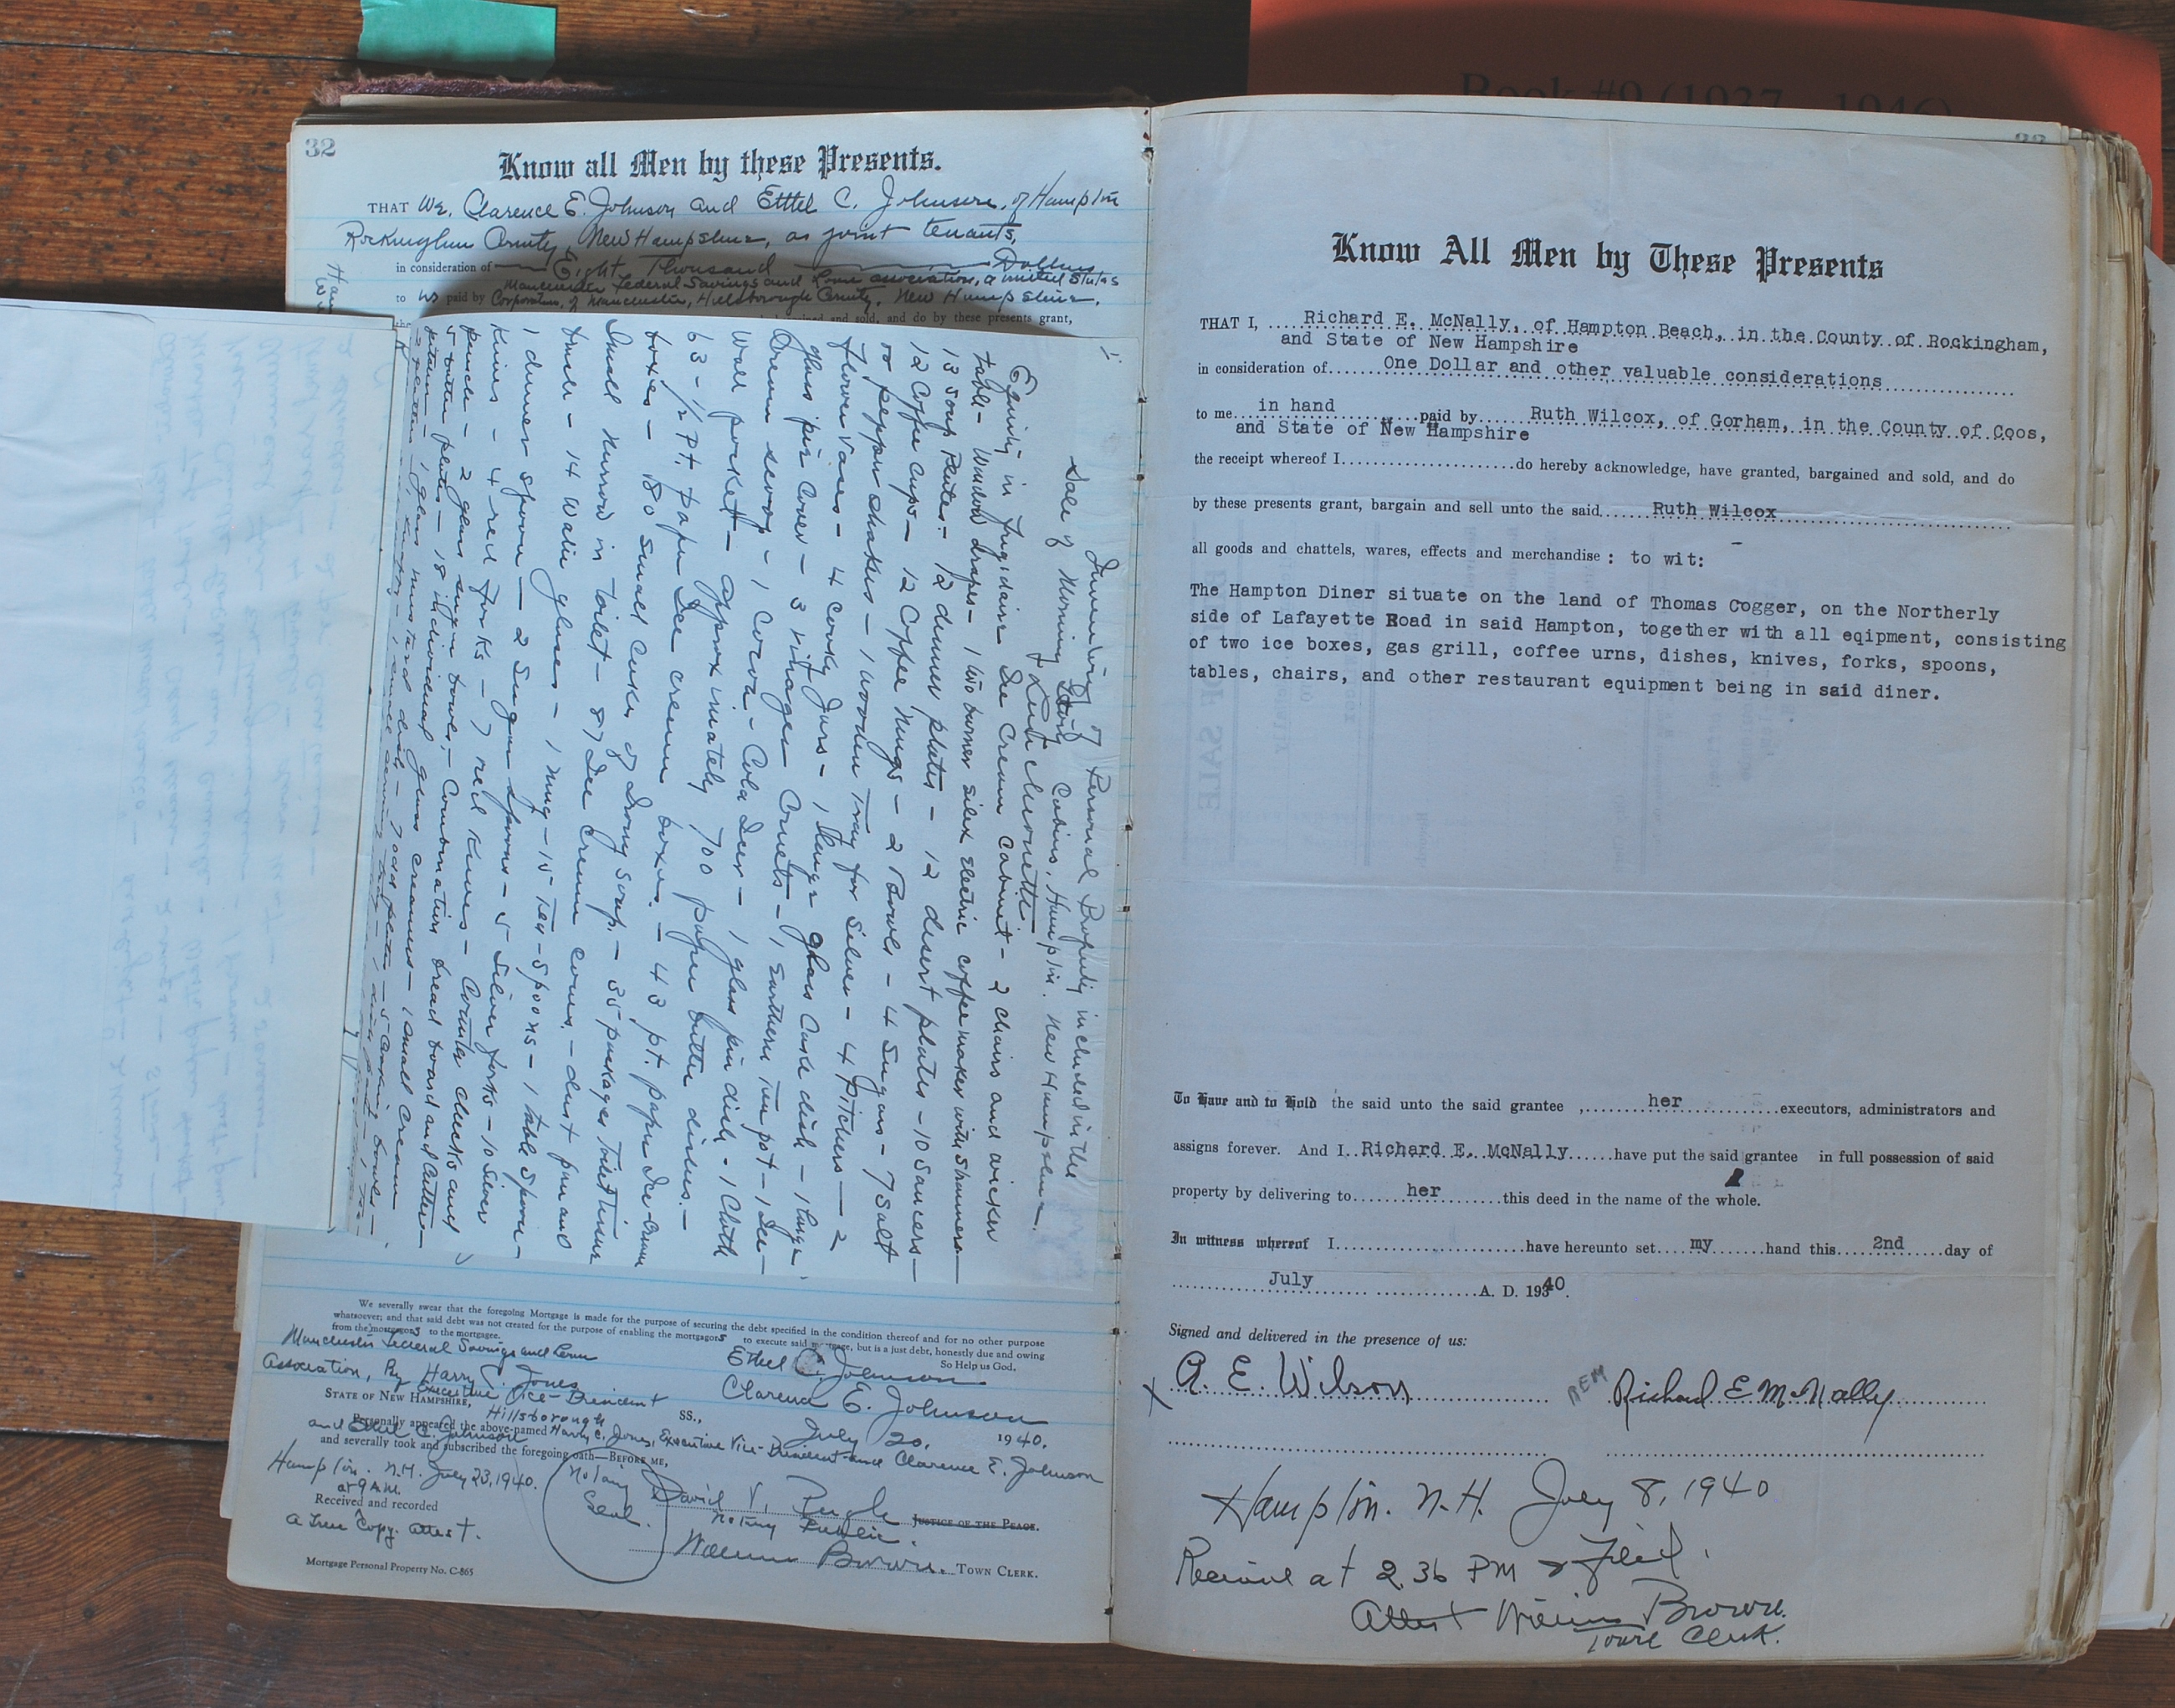 Book #9 (1937 - 1946)
32
Know all Men by these Presents.
THAT We, Clarence E. Johnson and Ethel C. Johnson, of Hampton
Rockingham County, New Hampshire, as joint tenants,
in consideration of Eight Thousand Dollars
Manchester Federal Savings and Loan association, a United States
to us paid by Corporation, of Manchester, Hillsborough County, New Hampshire,
and sold, and do by these presents grant,
Inventory of Personal Property included in the
Sale of Morning Cabins, Hampton. New Hampshire.
Equity in Frigidaire Ice Cream Cabinet - 2 chairs and wicker
table - window drapes - 1 two burner silex electric coffee maker with strainers -
13 soup plates - 12 dinner plates - 12 desert plates - 10 saucers -
12 Coffee Cups - 12 Coffee Mugs - 2 Bowls - 4 Sugars - 7 Salt
or pepper shakers - 1 wooden Tray for Silver - 4 Pitchers - 2
Flower Vases - 4 Cooky Jars - 1 large glass Cake dish - 1 large
glass pie Cover - 3 vinager Cruets - 1 Earthern Tea pot - 1 Ice -
Cream scoop - 1 Cocoa - Cola Icer - 1 glass pin dish - 1 Cloth
Wall pocket - approximately 700 paper butter dishes. -
63 - 1/2 Pt. paper Ice cream boxes. - 43 pt. paper Ice-Cream
boxes - 180 small Cakes of Ivory Soap. - 35 packages toilet tissue
Small Mirror in Toilet - 87 Ice Cream cones. - dust pan and
brush - 14 Water glasses - 1 Mug - 15 Tea-Spoons - 1 table Spoon -
1 dinner spoon - 2 Sugar spoons - 5 Silver forks - 10 Silver
Knives - 4 red Forks - 7 red Knives - Counter checks and
pencils - 2 glass sugar bowls, - Combination bread board and Cutter -
5 butter plates - 18 individual glass creamers - 1 small Cream
pitcher - 1 glass mustard dish - 7 odd plates - 5 Cooking bowls -
We severally swear that the foregoing Mortgage is made for the purpose of securing the debt specified in the condition thereof and for no other purpose
whatsoever; and that said debt was not created for the purpose of enabling the mortgagors to execute said mortgage, but is a just debt, honestly due and owing
from the mortgagors to the mortgagee. So Help us God.
Manchester Federal Savings and Loan
Association, By Harry C. Jones
Executive Vice-President
Ethel C. Johnson
Clarence E. Johnson
STATE OF NEW HAMPSHIRE, Hillsborough SS., July 20, 1940.
Personally appeared the above-named Harry C. Jones, Executive Vice-President and Clarence E. Johnson
and Ethel C. Johnson
and severally took and subscribed the foregoing oath—BEFORE ME,
Hampton. N.H. July 23, 1940.
at 9 A.M.
Received and recorded
A True Copy. attest.
Notary
Seal.
David V. Pugh JUSTICE OF THE PEACE.
Notary Public.
William Brown. TOWN CLERK.
Mortgage Personal Property No. C-865
Know All Men by These Presents
THAT I, Richard E. McNally, of Hampton Beach, in the County of Rockingham,
and State of New Hampshire
in consideration of One Dollar and other valuable considerations
to me in hand paid by Ruth Wilcox, of Gorham, in the County of Coos,
and State of New Hampshire
the receipt whereof I do hereby acknowledge, have granted, bargained and sold, and do
by these presents grant, bargain and sell unto the said Ruth Wilcox
all goods and chattels, wares, effects and merchandise : to wit:
The Hampton Diner situate on the land of Thomas Cogger, on the Northerly
side of Lafayette Road in said Hampton, together with all eqipment, consisting
of two ice boxes, gas grill, coffee urns, dishes, knives, forks, spoons,
tables, chairs, and other restaurant equipment being in said diner.
To Have and to Hold the said unto the said grantee , her executors, administrators and
assigns forever. And I Richard E. McNally have put the said grantee in full possession of said
property by delivering to her this deed in the name of the whole.
In witness whereof I have hereunto set my hand this 2nd day of
July A. D. 1940.
Signed and delivered in the presence of us:
X A. E. Wilson REM Richard E McNally
Hampton. N.H. July 8, 1940
Received at 2.36 PM & Filed.
Attest William Brown.
Town Clerk.